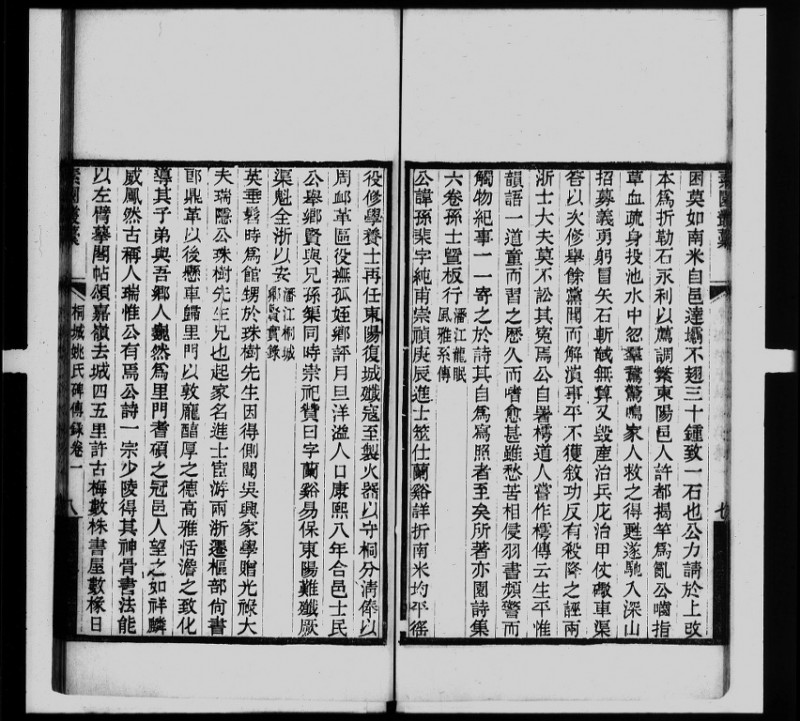 困莫如南米自邑達壩不翅三十鍾致一石也公力請於上改
本為折勒石永利以薦調繁東陽邑人許都揭竿為亂公嚙指
草血疏身投池水中忽羣鵞驚鳴家人救之得甦遂馳入深山
招募義勇躬冒矢石斬馘無算又毀產治兵庀治甲仗轞車渠
魁以次修舉餘黨聞而解潰事平不獲敘功反有殺降之誣兩
浙士大夫莫不訟其冤焉公自署樗道人嘗作樗傳云生平惟
韻語一道童而習之歷久而嗜愈甚雖愁苦相侵羽書頻警而
觸物紀事一一寄之於詩其自為寫照者至矣所著亦園詩集
六卷孫士暨板行
潘江龍眠
風雅系傳
公諱孫棐字純甫崇禎庚辰進士筮仕蘭谿詳折南米均平徭
七
役修學養士再任東陽復城殲寇至製火器以守桐分清俸以
周邮革區役撫孤姪鄉評月旦洋溢人口康熙八年合邑士民
公舉鄉賢與兄孫榘同時崇祀贊曰字蘭谿易保東陽難殲厥
渠魁全浙以安
潘江桐城
鄉賢實錄
英垂髫時為館甥於珠樹先生因得側聞吳興家學贈光祿大
夫瑞隱公珠樹先生兄也起家名進士宦游兩浙遷樞部尚書
郎鼎革以後懸車歸里門以敦龐醕厚之德高雅恬澹之致化
導其子弟與吾鄉人巍然為里門耆碩之冠邑人望之如祥麟
威鳳然古稱人瑞惟公有焉公詩一宗少陵得其神骨書法能
以左臂摹閣帖頌嘉嶺去城四五里許古梅數株書屋數椽日
桐城姚氏碑傳錄卷一
八